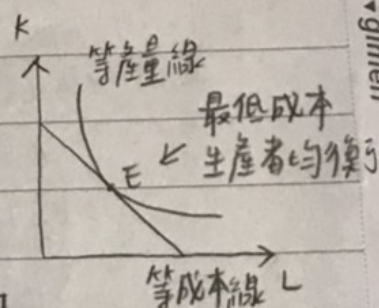 K
等産量線
最低成本
生產者均衡
E
等成本線 L